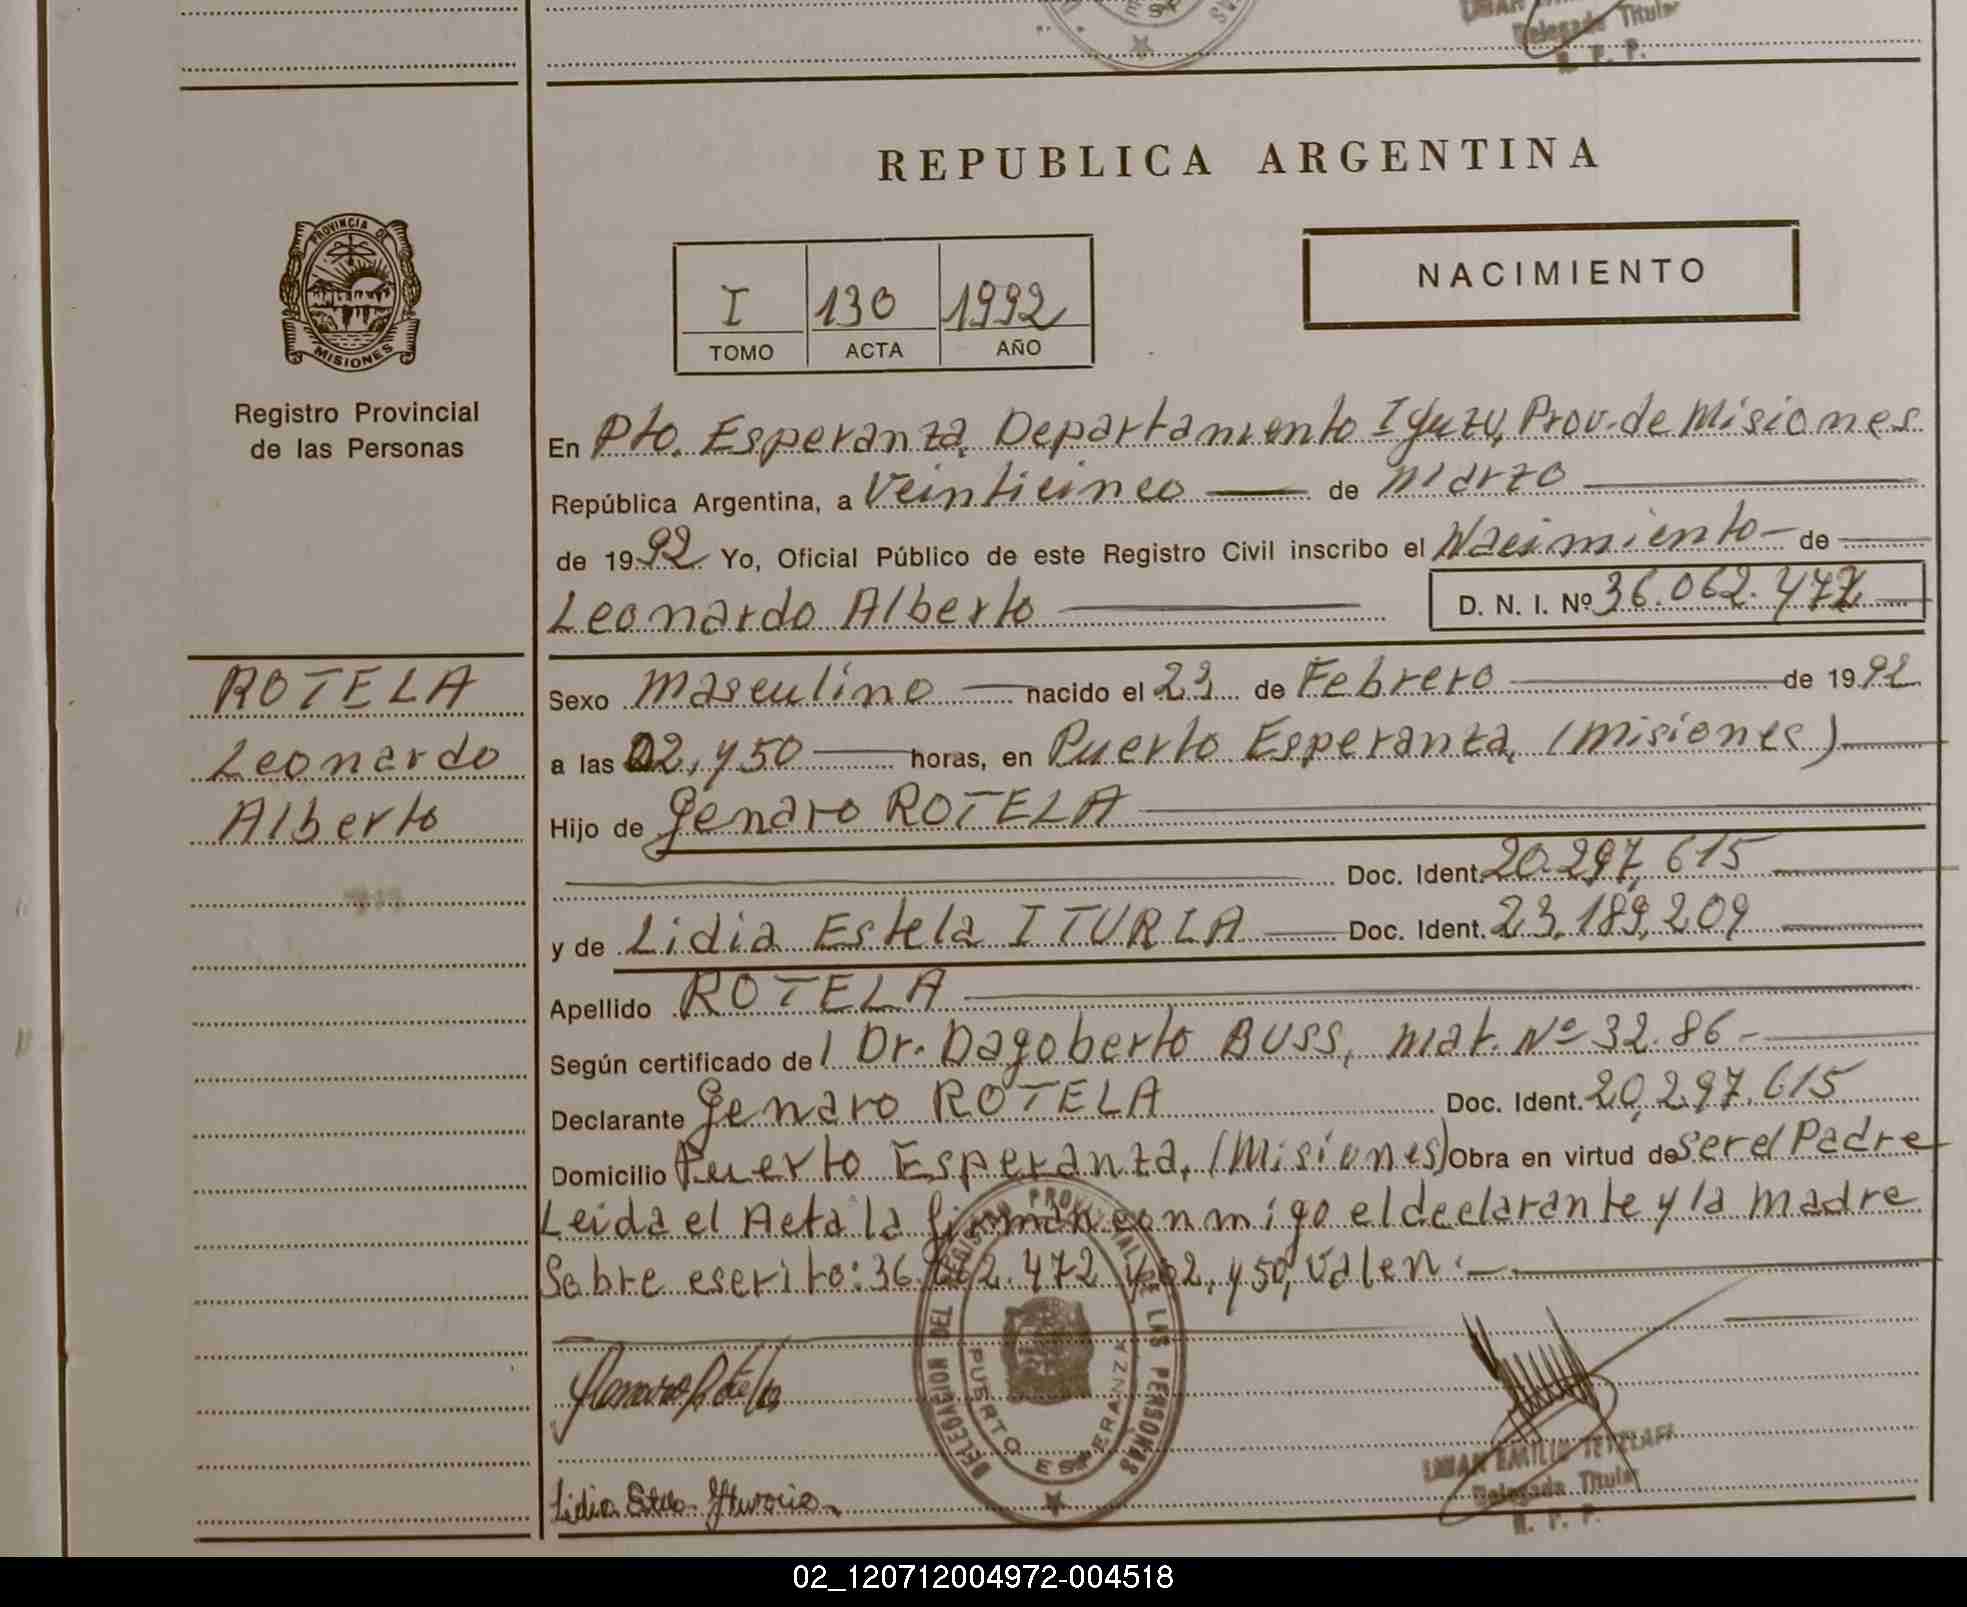 Delegada Titular
R. P. P.
REPUBLICA ARGENTINA
PROVINCIA DE
MISIONES
Registro Provincial
de las Personas
I 130 1992
TOMO ACTA AÑO
NACIMIENTO
En Pto. Esperanza, Departamento Iguzu, Prov. de Misiones
República Argentina, a Veinticinco — de Marzo —
de 1992 Yo, Oficial Público de este Registro Civil inscribo el Nacimiento — de —
Leonardo Alberto — D. N. I. Nº 36.062.472 —
ROTELA
Leonardo
Alberto
Sexo Masculino — nacido el 23 de Febrero — de 1992
a las 02, y 50 — horas, en Puerto Esperanza, (Misiones) —
Hijo de Genaro ROTELA —
— Doc. Ident. 20.297,615 —
y de Lidia Estela ITURIA — Doc. Ident. 23,189,209 —
Apellido ROTELA —
Según certificado del Dr. Dagoberto BUSS, Mat. Nº 32.86 - —
Declarante Genaro ROTELA Doc. Ident. 20,297.615
Domicilio Puerto Esperanza, (Misiones) Obra en virtud de ser el Padre
Leida el Acta la firman conmigo el declarante y la madre
Sobre escrito: 36.062.472 y 02, y 50, Valen. —
DELEGACION DEL REGISTRO PROVINCIAL DE LAS PERSONAS
PUERTO ESPERANZA
Genaro Rotela
Lidia Estela Ituria
Delegada Titular
R. P. P.
02_120712004972-004518